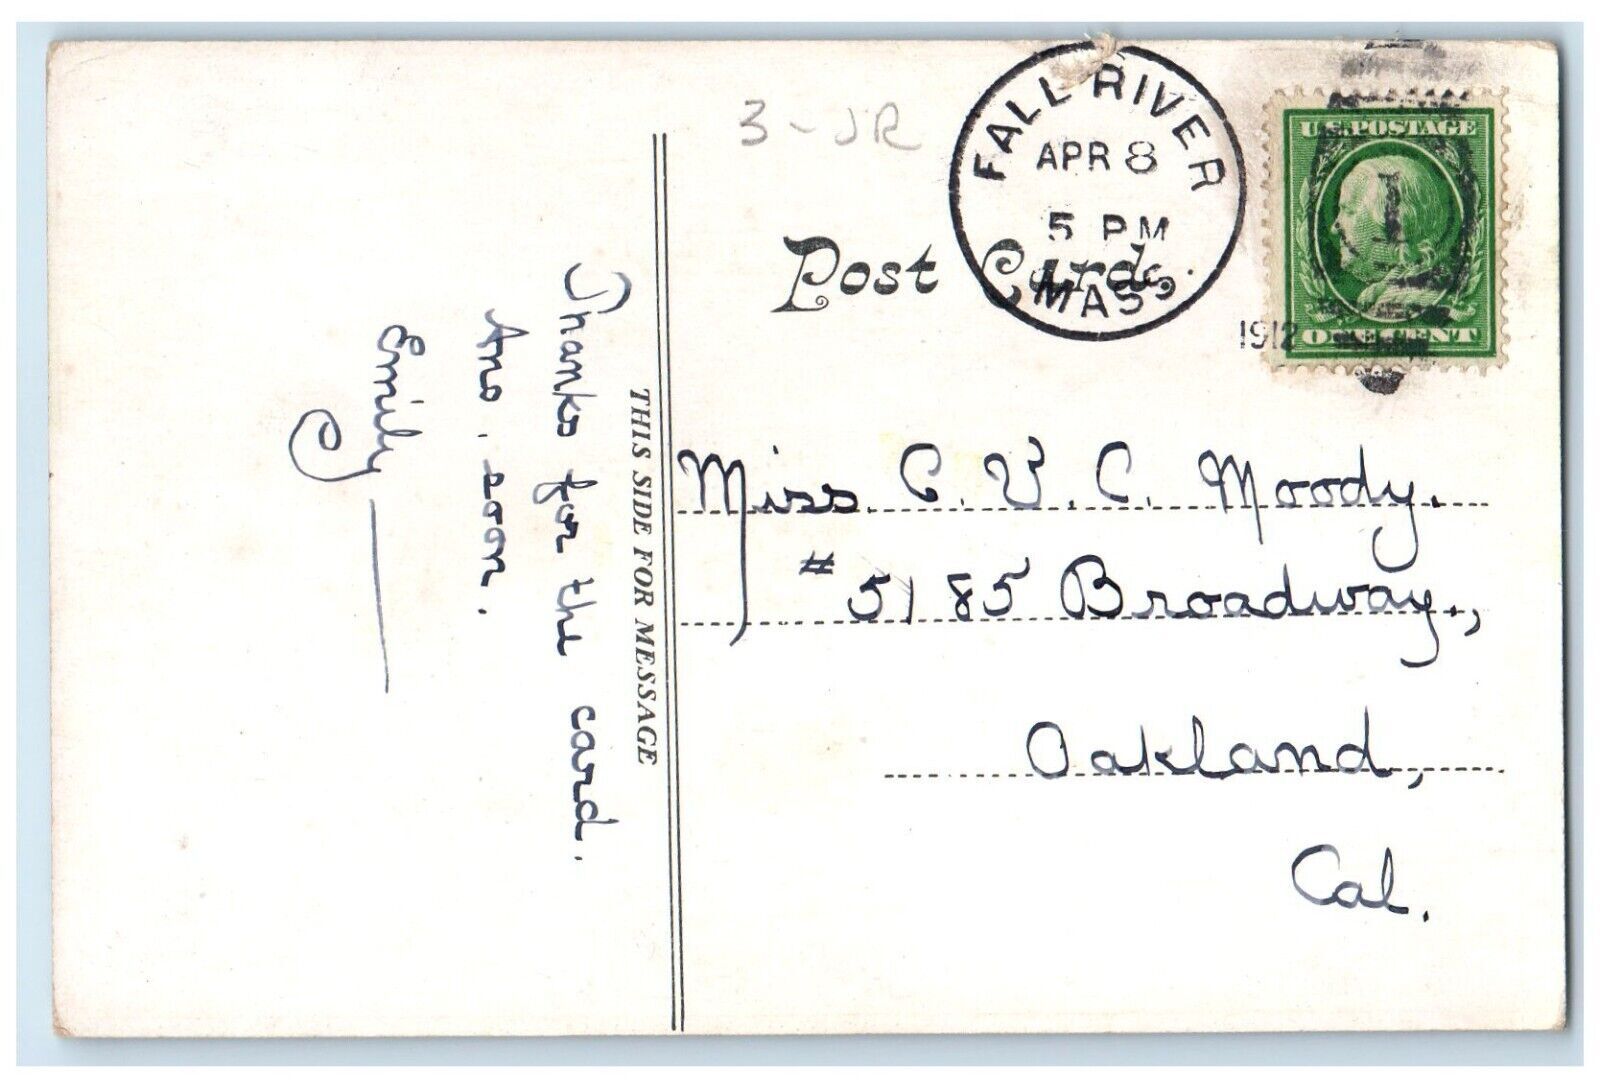 3 - JR
FALL RIVER
APR 8
5 PM
MASS.
1912
U.S. POSTAGE
1
ONE CENT
Post Card
THIS SIDE FOR MESSAGE
Thanks for the card.
Ans. soon.
Emily
Miss C. V. C. Moody.
# 5185 Broadway.,
Oakland,
Cal.